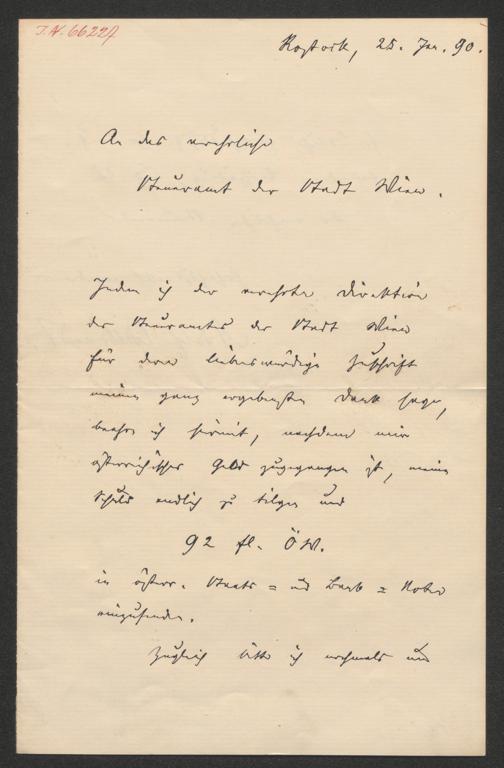 I.N. 66227
Rostock, 25. Jan. 90.
An das verehrliche
Steueramt der Stadt Wien.
Indem ich der verehrten Direktion
des Steueramtes der Stadt Wien
für deren liebenswürdige Zuschrift
meinen ganz ergebensten Dank sage,
beehre ich hiermit, nachdem mir
österreichisches Geld zugegangen ist, meine
Schuld endlich zu tilgen und
92 fl. ÖW.
in österr. Staats = und Bank = Noten
einzusenden.
Zugleich bitte ich nochmals um